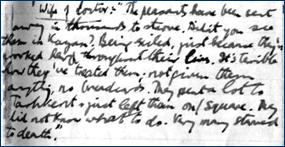 Wife of doctor: "The peasants have been sent
away in thousands to starve. Did it you see
them in Kazan? Being exiled, just because they
worked hard throughout their lives. It's terrible
how they've treated them, not given them
anything, no bread cards. They sent a lot to
Tashkent & just left them on/square. They
did not know what to do. Very many starved
to death."